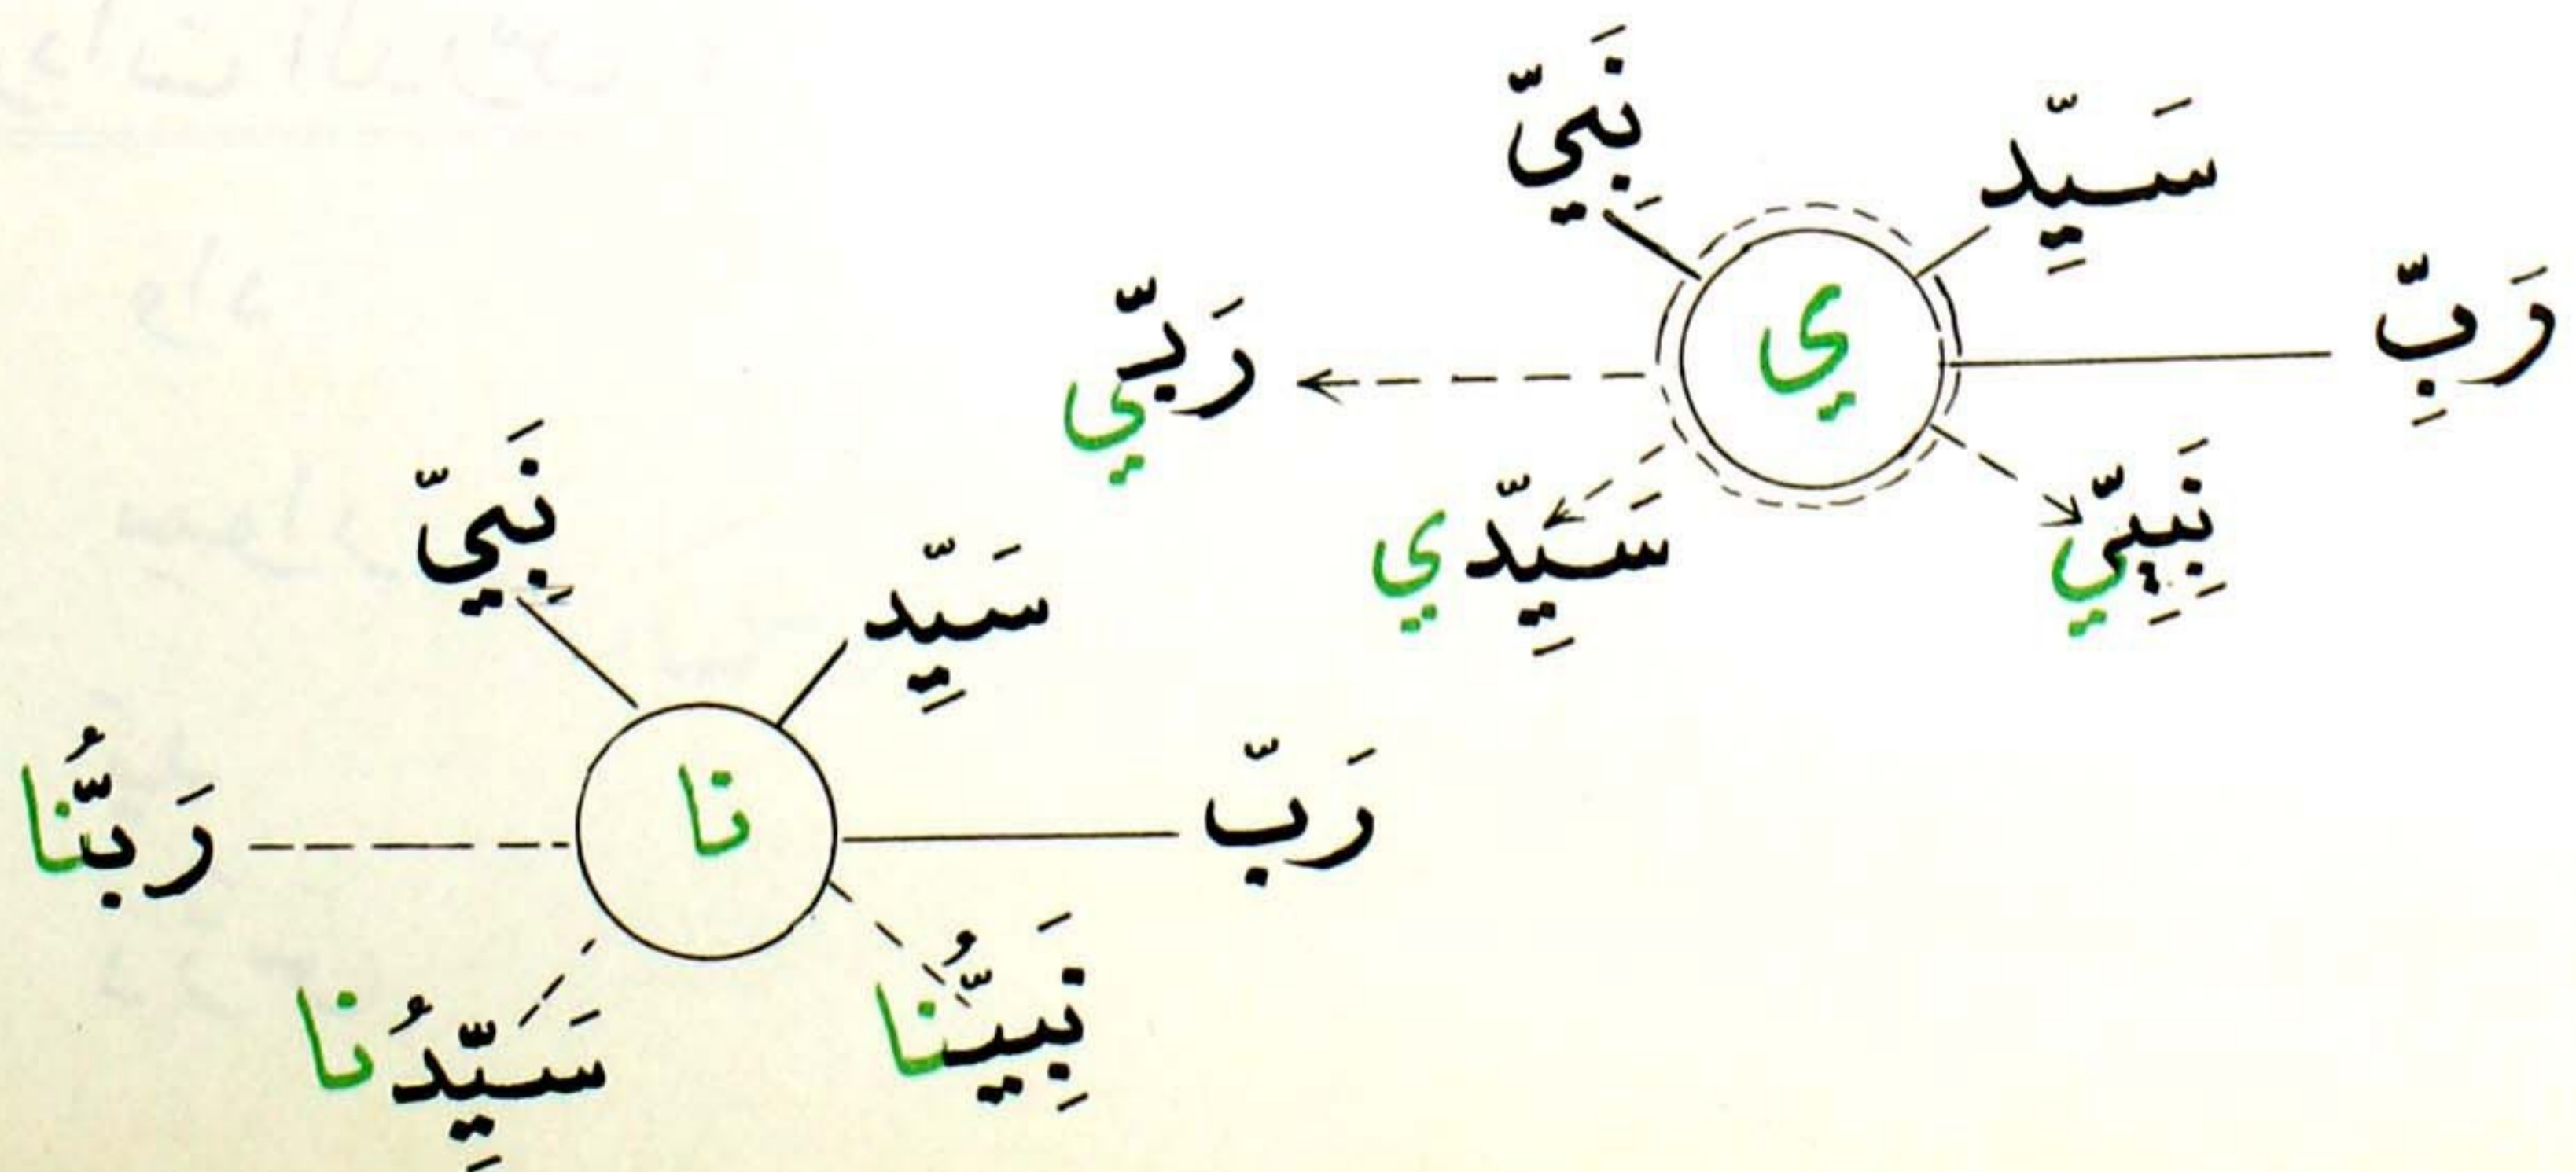 نَبِيّ
سَيِّد
رَبِّ
ي
رَبِّي
سَيِّدي
نَبِيِّي
نَبِيّ
سَيِّد
رَبّ
نا
رَبُّنا
سَيِّدُنا
نَبِيُّنا